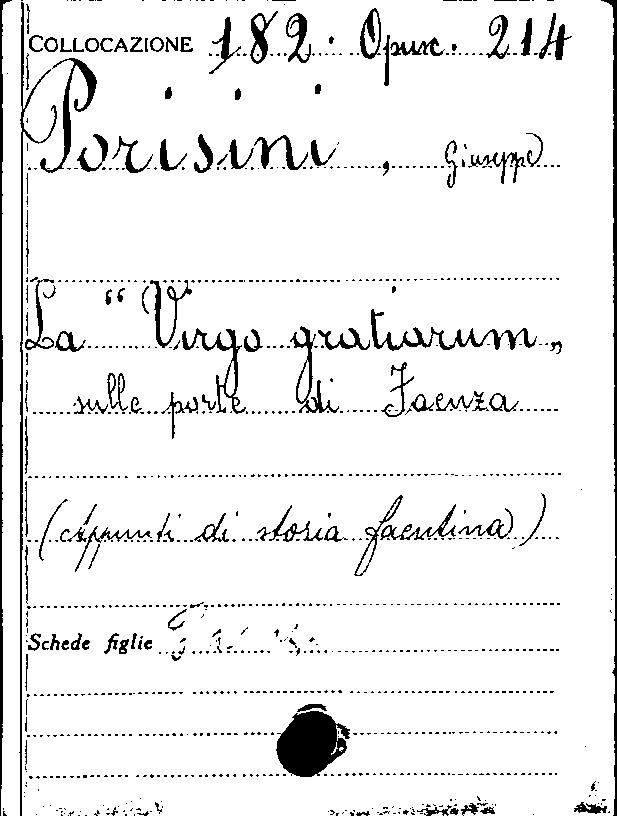 COLLOCAZIONE 182. Opusc. 214
Porisini, Giuseppe
La “Virgo gratiarum„
sulle porte di Faenza
(Appunti di storia faentina)
Schede figlie